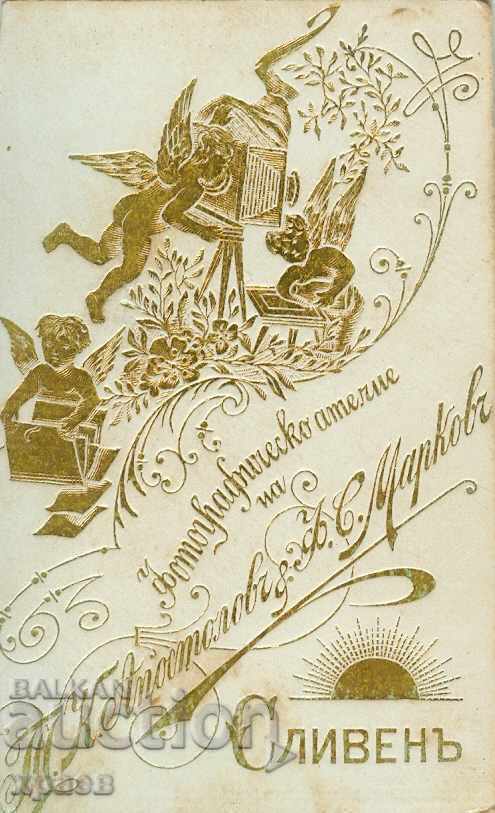 Фотографическо ателие
на
Апостоловъ & Ф. С. Марковъ
Сливенъ
BALKAN
auction
храбъ